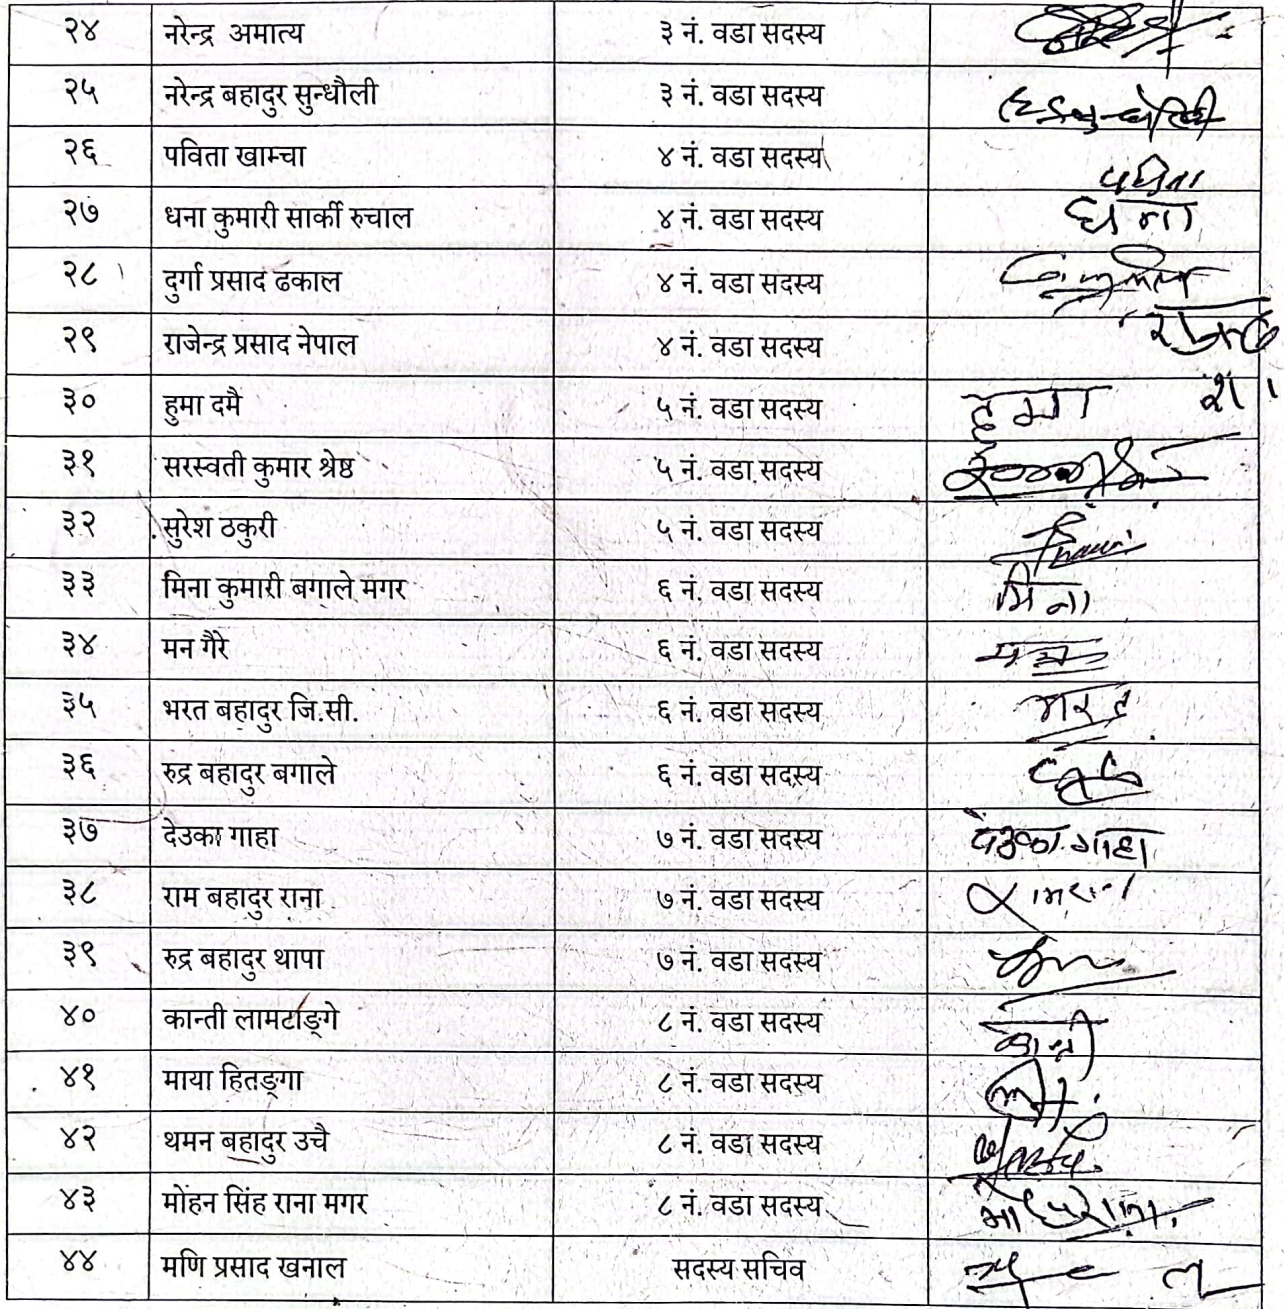 २४ नरेन्द्र अमात्य ३ नं. वडा सदस्य
२५ नरेन्द्र बहादुर सुन्धौली ३ नं. वडा सदस्य
२६ पविता खाम्चा ४ नं. वडा सदस्य पविता
२७ धना कुमारी सार्की रुचाल ४ नं. वडा सदस्य धना
२८ दुर्गा प्रसाद ढकाल ४ नं. वडा सदस्य
२९ राजेन्द्र प्रसाद नेपाल ४ नं. वडा सदस्य
३० हुमा दमै ५ नं. वडा सदस्य हुमा
३१ सरस्वती कुमार श्रेष्ठ ५ नं. वडा सदस्य
३२ सुरेश ठकुरी ५ नं. वडा सदस्य
३३ मिना कुमारी बगाले मगर ६ नं. वडा सदस्य मिना
३४ मन गैरे ६ नं. वडा सदस्य
३५ भरत बहादुर जि.सी. ६ नं. वडा सदस्य भरत
३६ रुद्र बहादुर बगाले ६ नं. वडा सदस्य
३७ देउका गाहा ७ नं. वडा सदस्य देउका गाहा
३८ राम बहादुर राना ७ नं. वडा सदस्य
३९ रुद्र बहादुर थापा ७ नं. वडा सदस्य
४० कान्ती लामटाङ्गे ८ नं. वडा सदस्य कान्ती
४१ माया हितङ्गा ८ नं. वडा सदस्य
४२ थमन बहादुर उचै ८ नं. वडा सदस्य
४३ मोहन सिंह राना मगर ८ नं. वडा सदस्य
४४ मणि प्रसाद खनाल सदस्य सचिव